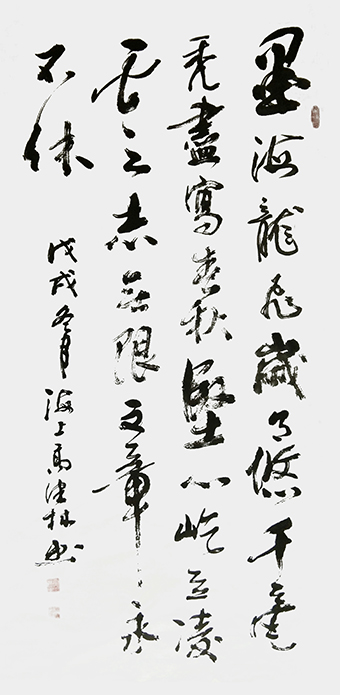 墨海龍飛歲月悠千毫
禿盡寫春秋堅心屹立凌
雲志無限文章永
不休
戊戌冬月海上林书